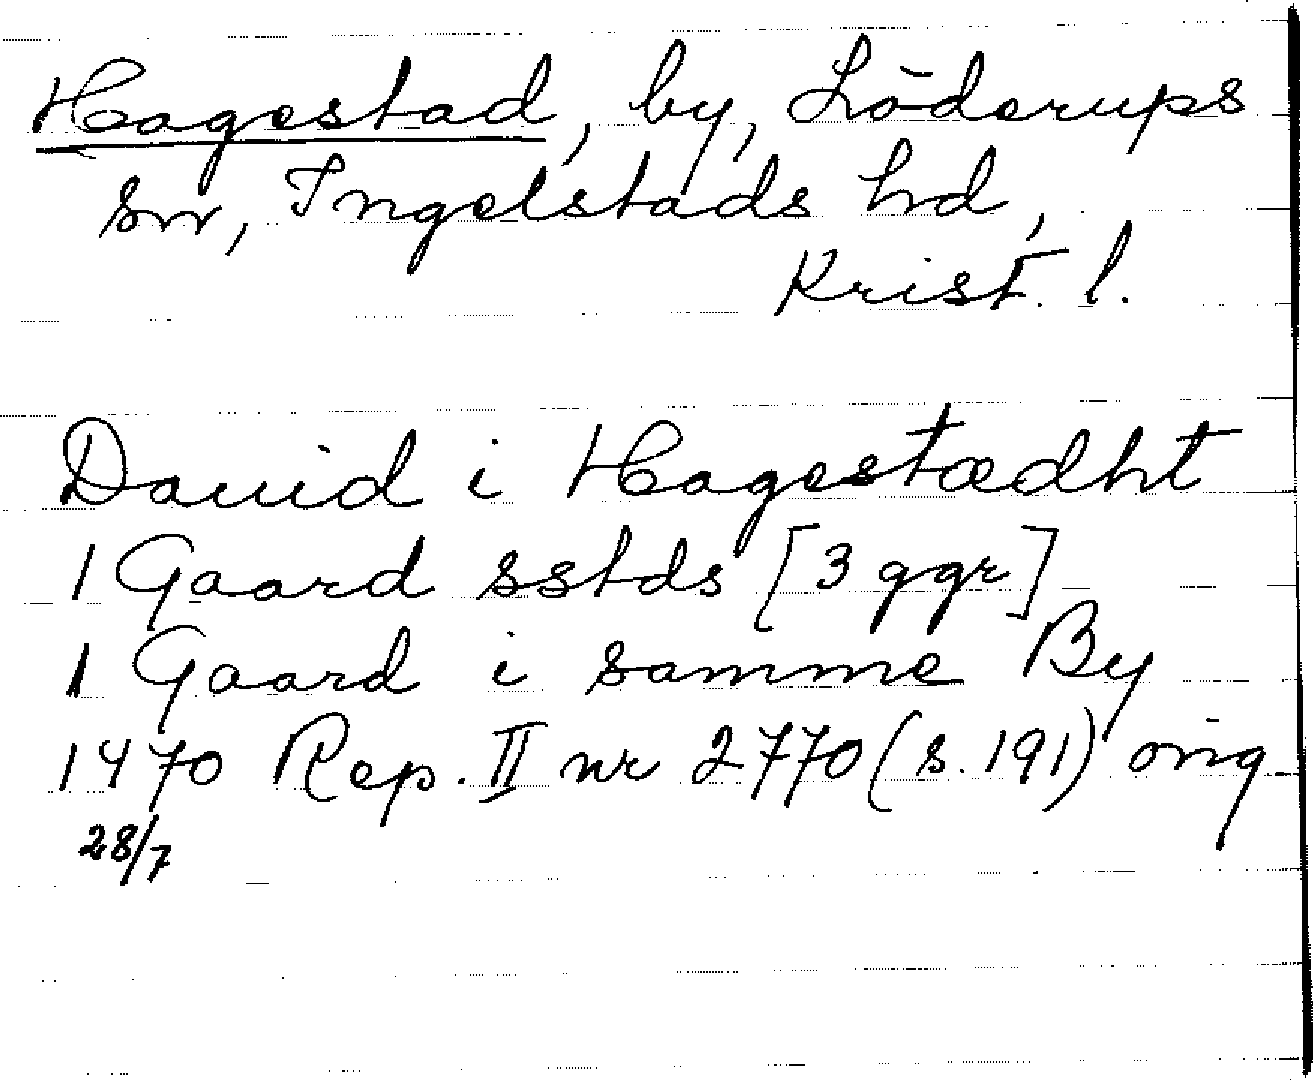 Hagestad, by, Löderups
sn, Ingelstads hd,
Krist. l.
Dauid i Hagestædht
1 Gaard sstds [3 ggr]
1 Gaard i samme By
1470 Rep. II nr 2770 (s. 191) orig
28/7